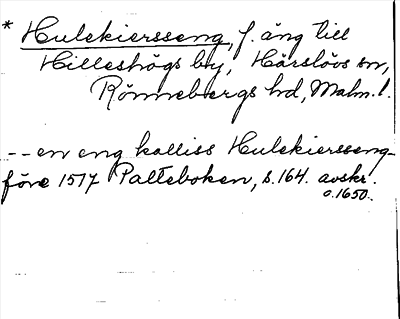 * Hulekiersseng, f. äng till
Hilleshögs by, Härslövs sn,
Rönnebergs hd, Malm. l.
-- en eng kalliss Hulekiersseng-
före 1517 Palteboken, s. 164. avskr.
o. 1650.